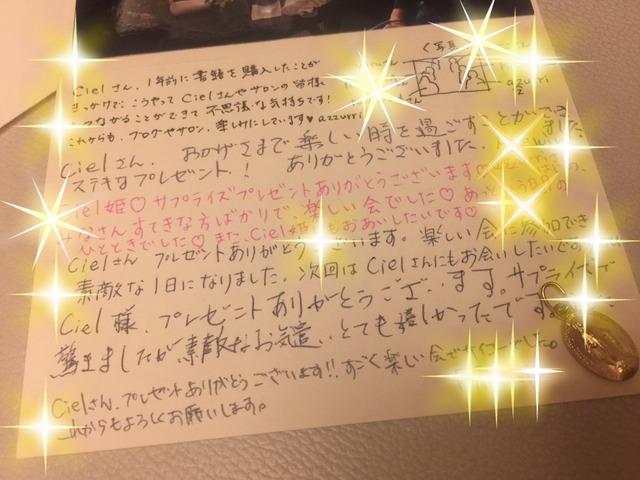 Cielさん、1年前に書籍を購入したことが
きっかけで、こうやってCielさんやサロンの皆様
つながることができて不思議な気持ちです!
これからも、ブログやサロン、楽しみにしています♥ azzurri
<写真
azzurri
Cielさん、おかげさまで楽しい時を過ごすことができました。
ステキなプレゼント! ありがとうございました。
Ciel姫♡サプライズプレゼントありがとうございます♡
みなさんすてきな方ばかりで、楽しい会でした♡あっという間の
ひとときでした♡また、Ciel姫にもおあいしたいです♡
Cielさん プレゼントありがとうございます。楽しい会に参加でき
素敵な1日になりました。次回はCielさんにもお会いしたいです
Ciel様、プレゼントありがとうございます。サプライズで
驚きましたが素敵なお気遣い、とても嬉しかったです。
Cielさん、プレゼントありがとうございます!!すごく楽しい会でサイコーでした。
これからもよろしくお願いします。